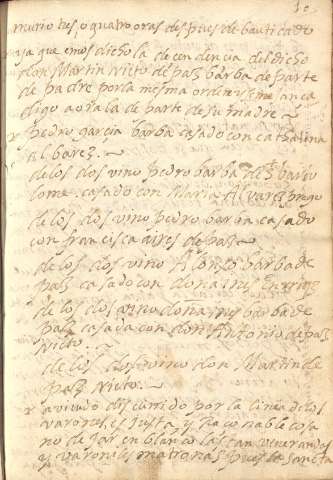 10
murio tes, o quatro oras despues de bautiçado
ya que emos dicho la decendencia del dicho
don Martin nieto de paz barba de parte
de padre por la mesma orden
digo aora la de parte de su madre
pedro garcia barba casado con catalina
albarez
de los dos vino pedro barba de
casado con Maria Alvarez
de los dos vino pedro barba casado
con francisca aires de paz
de los dos vino Alonso barba de
paz casado con doña ines
de los dos vino doña ines barba de
paz casada con don Antonio de paz
nieto
de los dos vino don Martin de
paz nieto
aviendo discurrido por la linea de los
varones, es justa y raconable cosa
no dejar en blanco las tan venerandas
y varoniles matronas pues la